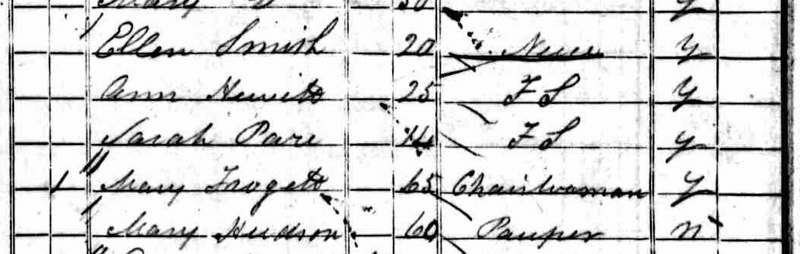 Mary
Ellen Smith 20 Niece Y
Ann Hewitt 25 F S Y
Sarah Pare F S y
1 Mary Frogett 65 Chairwoman Y
Mary Hudson 60 Pauper n